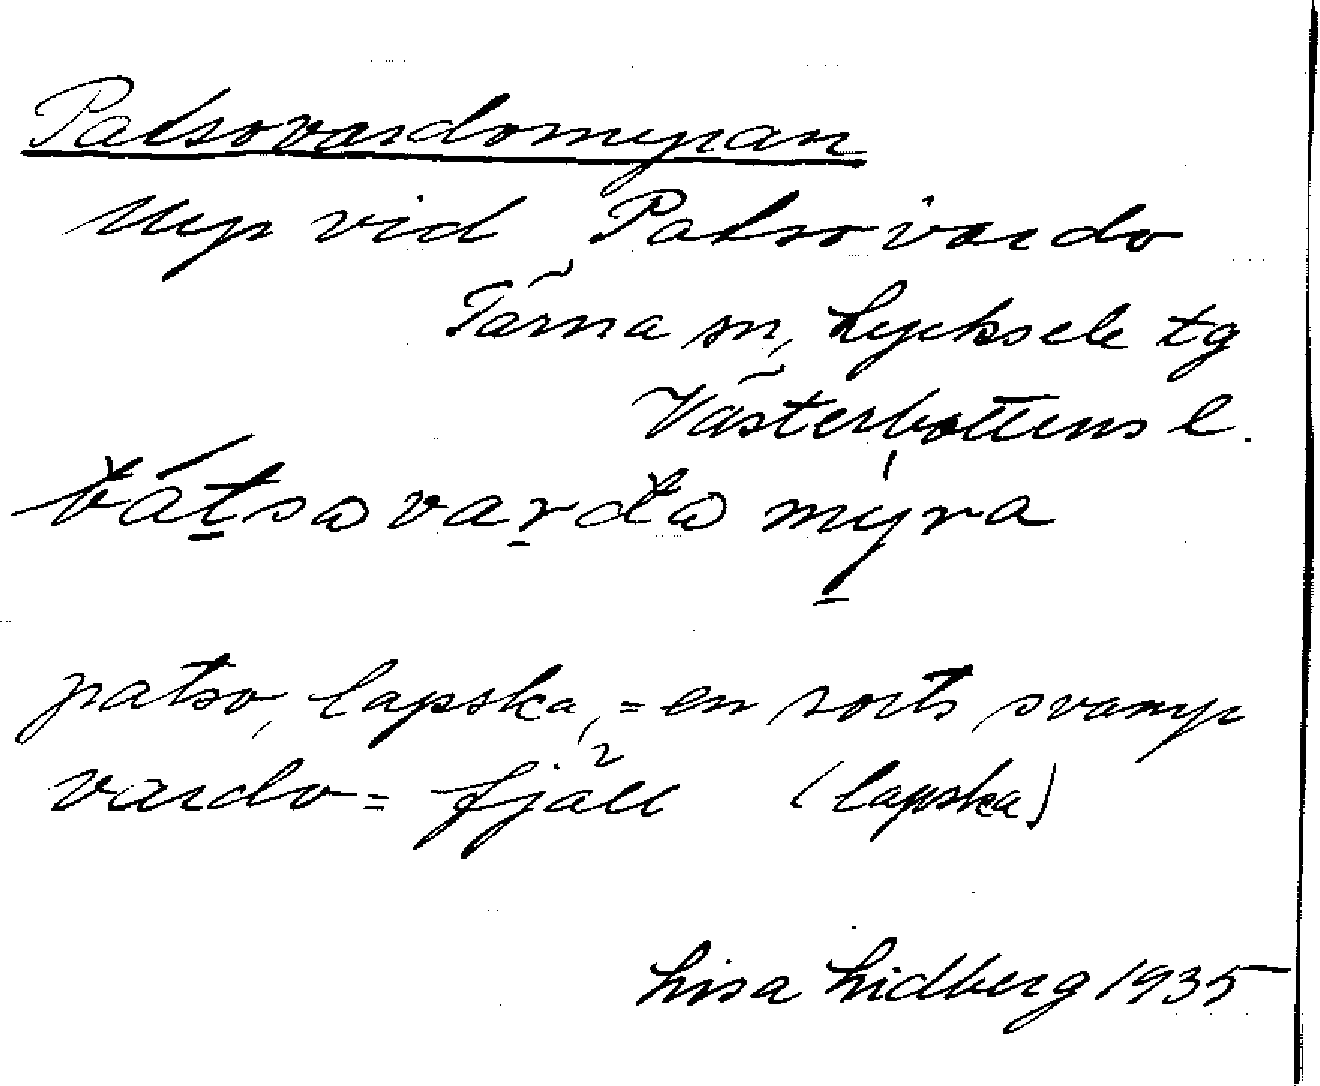 Patsovardomyran
Myr vid Patsovardo
Tärna sn, Lycksele tg
Västerbottens l.
bátsovarđo myra
patso, lapska, = en sorts svamp
vardo = fjäll (lapska)
Lisa Lidberg 1935